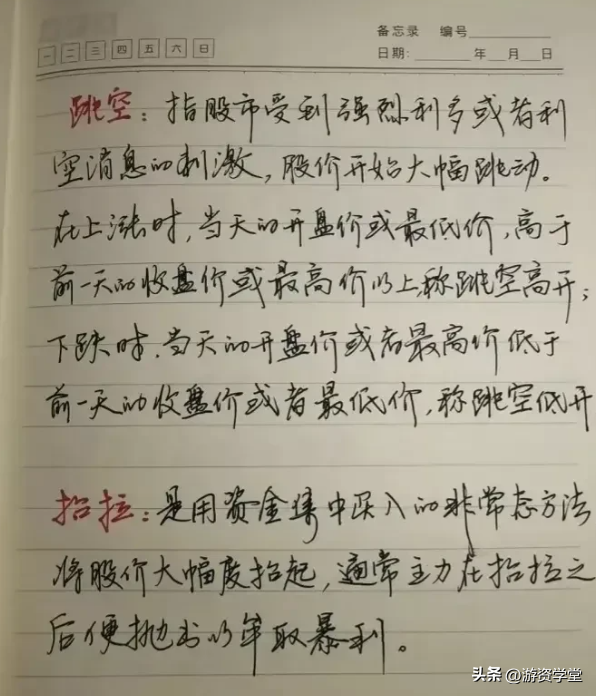 备忘录 编号
一 二 三 四 五 六 日
日期: 年 月 日
跳空：指股市受到强烈利多或者利
空消息的刺激，股价开始大幅跳动。
在上涨时，当天的开盘价或最低价，高于
前一天的收盘价或最高价以上，称跳空高开；
下跌时，当天的开盘价或者最高价低于
前一天的收盘价或者最低价，称跳空低开
抬拉：是用资金集中买入的非常态方法
将股价大幅度抬起，通常主力在抬拉之
后便抛出以牟取暴利。
头条 @游资学堂